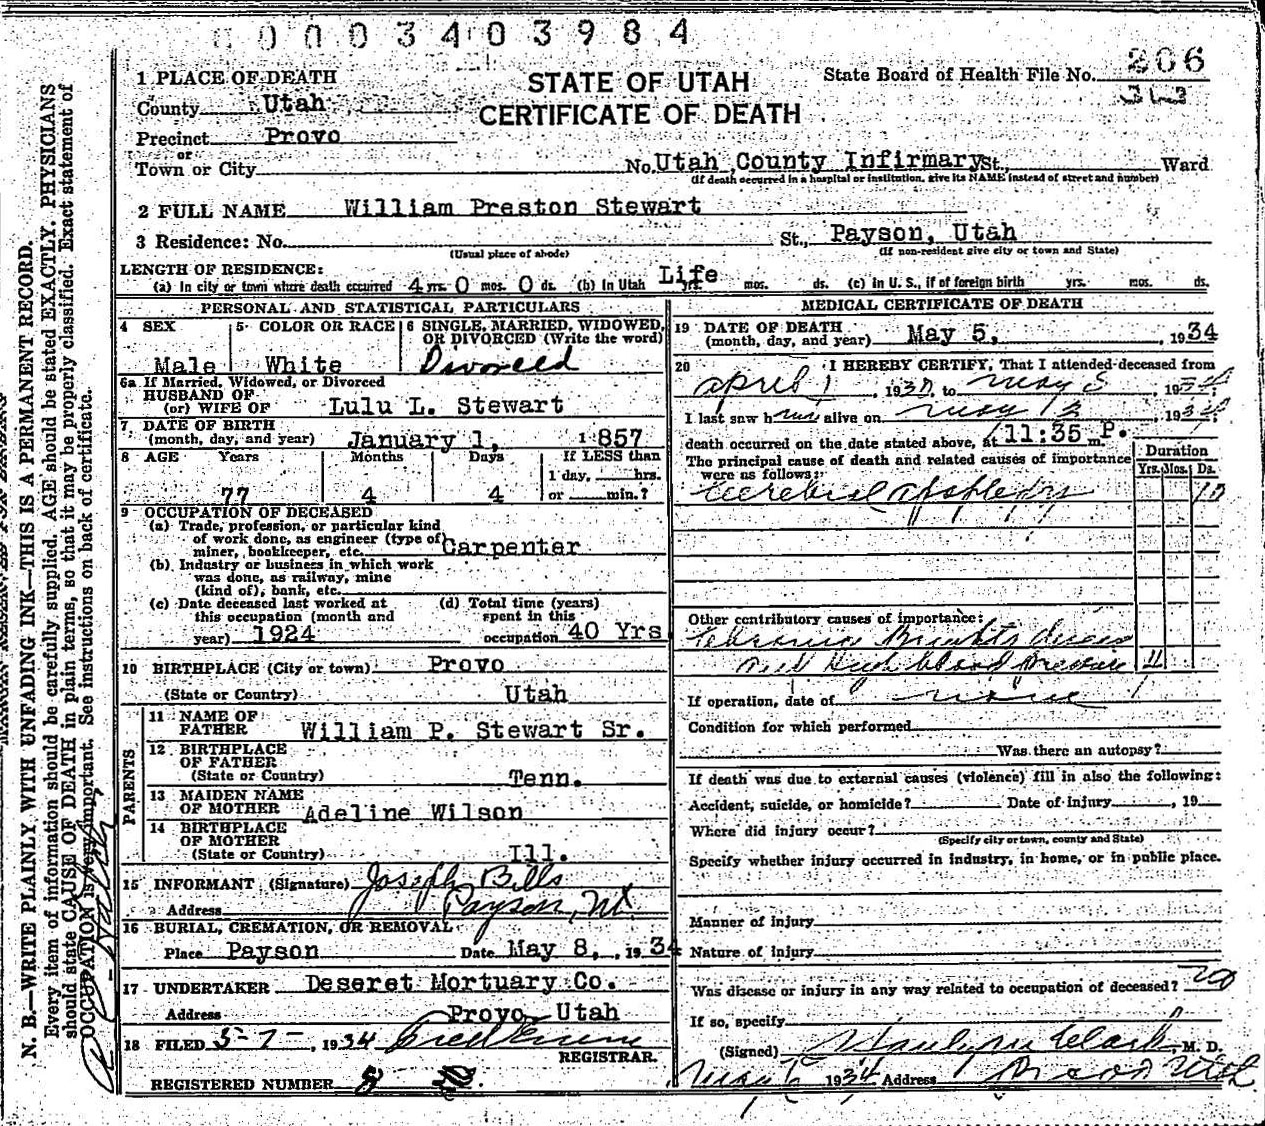 0003403984
1 PLACE OF DEATH
STATE OF UTAH
CERTIFICATE OF DEATH
State Board of Health File No. 206
County Utah
Precinct Provo
or
Town or City
No. Utah County Infirmary St., Ward
(If death occurred in a hospital or institution, give its NAME instead of street and number)
2 FULL NAME William Preston Stewart
3 Residence: No. St., Payson, Utah
(Usual place of abode) (If non-resident give city or town and State)
LENGTH OF RESIDENCE:
(a) In city or town where death occurred 4 yrs. 0 mos. 0 ds. (b) In Utah Life yrs. mos. ds. (c) in U. S., if of foreign birth yrs. mos. ds.
PERSONAL AND STATISTICAL PARTICULARS
4 SEX
Male
5 COLOR OR RACE
White
6 SINGLE, MARRIED, WIDOWED,
OR DIVORCED (Write the word)
Divorced
6a If Married, Widowed, or Divorced
HUSBAND OF
(or) WIFE OF Lulu L. Stewart
7 DATE OF BIRTH
(month, day, and year) January 1, 1857
8 AGE Years Months Days If LESS than
1 day, hrs.
77 4 4 or min.?
9 OCCUPATION OF DECEASED
(a) Trade, profession, or particular kind
of work done, as engineer (type of)
miner, bookkeeper, etc. Carpenter
(b) Industry or business in which work
was done, as railway, mine
(kind of), bank, etc.
(c) Date deceased last worked at
this occupation (month and
year) 1924
(d) Total time (years)
spent in this
occupation 40 Yrs
10 BIRTHPLACE (City or town) Provo
(State or Country) Utah
PARENTS
11 NAME OF
FATHER William P. Stewart Sr.
12 BIRTHPLACE
OF FATHER
(State or Country) Tenn.
13 MAIDEN NAME
OF MOTHER Adeline Wilson
14 BIRTHPLACE
OF MOTHER
(State or Country) Ill.
15 INFORMANT (Signature) Joseph Bills
Address Payson, Ut.
16 BURIAL, CREMATION, OR REMOVAL
Place Payson Date May 8, 1934
17 UNDERTAKER Deseret Mortuary Co.
Address Provo, Utah
18 FILED 5-7-, 1934
REGISTRAR.
REGISTERED NUMBER
MEDICAL CERTIFICATE OF DEATH
19 DATE OF DEATH
(month, day, and year) May 5, 1934
20 I HEREBY CERTIFY, That I attended deceased from
April 1, 1930, to May 5, 1934
I last saw him alive on May 3, 1934
death occurred on the date stated above, at 11:35 P. m.
The principal cause of death and related causes of importance
were as follows:
Duration
Yrs. Mos. Ds.
Cerebral apoplexy 10
Other contributory causes of importance:
Chronic Brights disease
and High blood Pressure 4
If operation, date of none
Condition for which performed
Was there an autopsy?
If death was due to external causes (violence) fill in also the following:
Accident, suicide, or homicide? Date of injury, 19
Where did injury occur?
(Specify city or town, county and State)
Specify whether injury occurred in industry, in home, or in public place.
Manner of injury
Nature of injury
Was disease or injury in any way related to occupation of deceased? no
If so, specify
(Signed) Clark, M. D.
May 6 1934 Address Provo Utah
N. B.—WRITE PLAINLY, WITH UNFADING INK—THIS IS A PERMANENT RECORD.
Every item of information should be carefully supplied. AGE should be stated EXACTLY. PHYSICIANS
should state CAUSE OF DEATH in plain terms, so that it may be properly classified. Exact statement of
OCCUPATION is very important. See instructions on back of certificate.